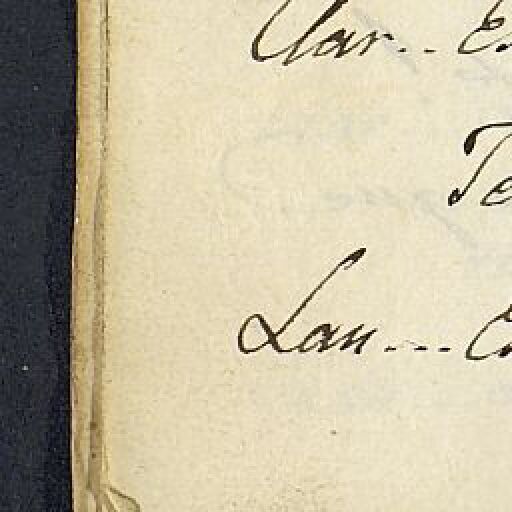 Clar.. E
Te
Lau... E